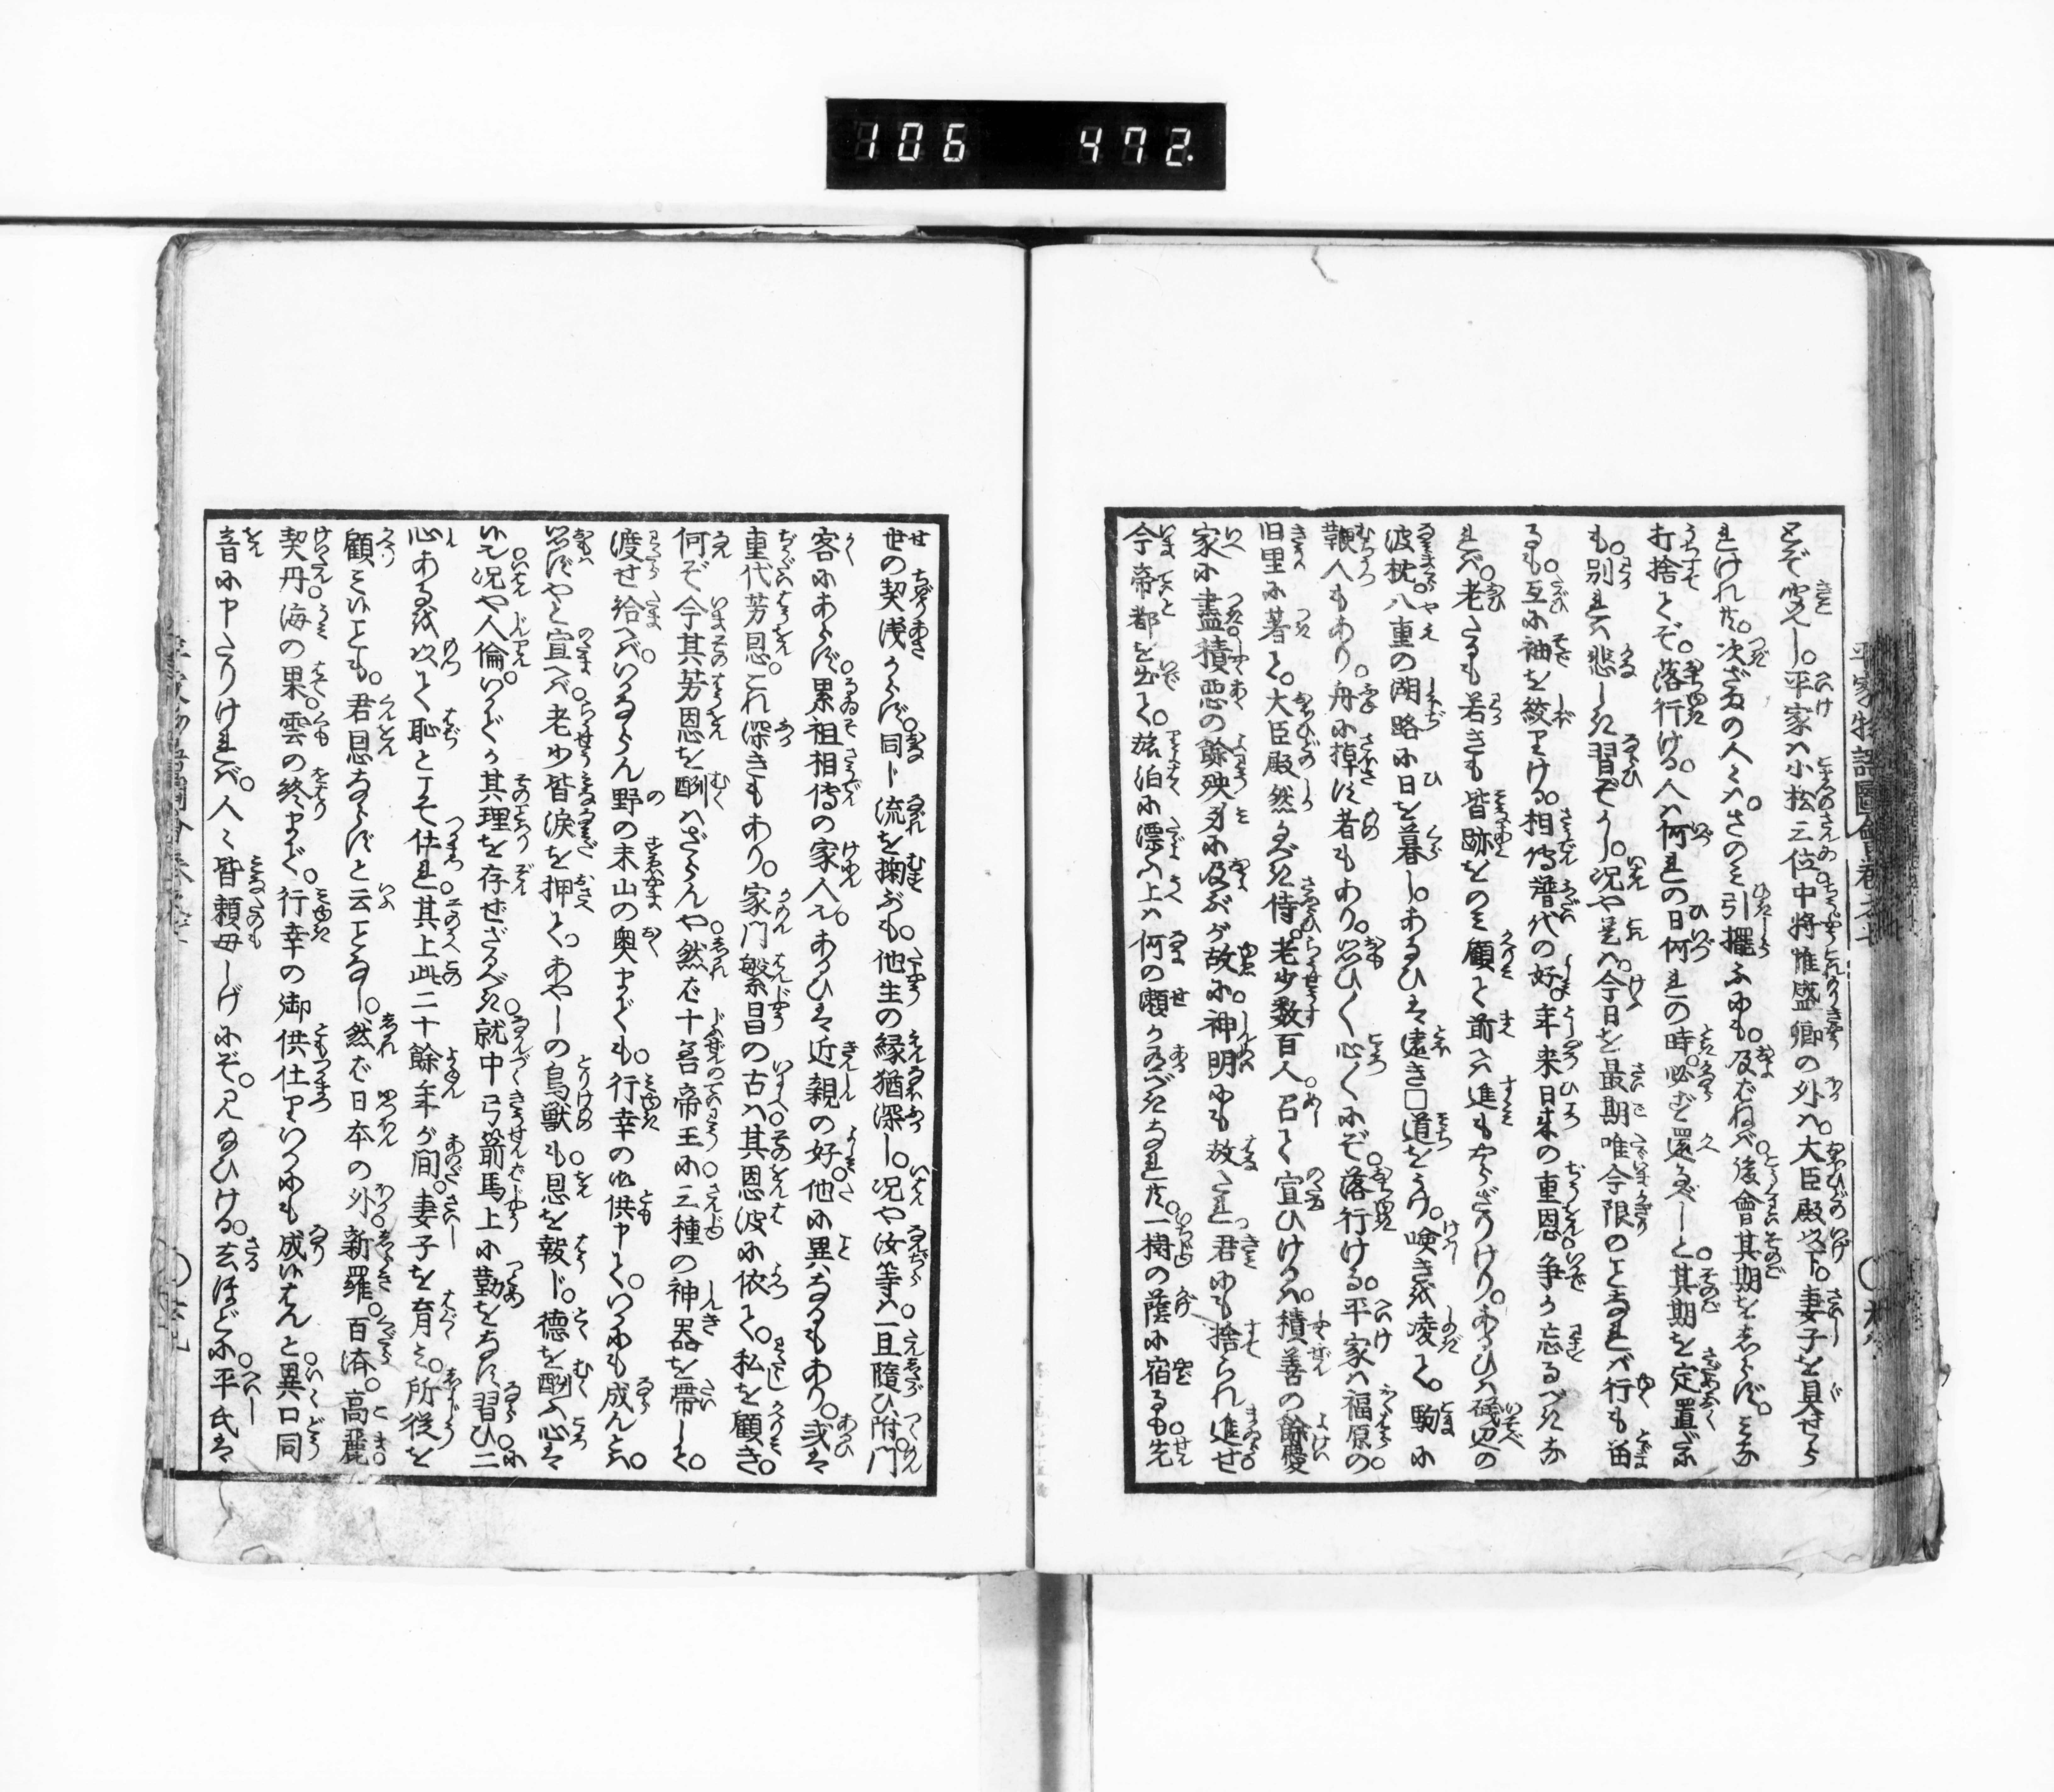 106 472.
平家物語圖會卷之七
とぞ聞えし。平家ハ小松三位中将惟盛卿の外ハ。大臣殿以下。妻子を具せら
れけれ共。次ざまの人々ハ。さのミ引擢ふにも。及ばねバ。後會其期をしらず。ミな
打捨てぞ。落行ける。人ハ何れの日何れの時。必ず還るべしと其期を定置だに
も。別れハ悲しき習ぞかし。況や是ハ。今日を最期唯今限のことなれバ行も留
るも。互に袖を絞りける。相傳譜代の好。年来日来の重恩。争か忘るべきな
れバ。老たるも若きも皆跡をのミ顧て前へハ進もやらざりけり。あるひハ礒辺の
波枕。八重の湖路に日を暮し。あるひは遠き□道をわけ。嶮きを凌て。駒に
鞭人もあり。舟に棹さす者もあり。思ひく心くにぞ。落行ける。平家ハ福原の
旧里に着て。大臣殿然るべき侍。老少数百人。召て宣ひけるハ。積善の餘慶
家に盡積悪の餘殃身に及ぶが故に。神明にも放たれ君にも捨られ進せ
今帝都を出て。旅泊に漂ふ上ハ何の頼かあるべきなれ共。一樹の蔭に宿るも先
世の契浅からず。同じ流を掬ぶも。他生の縁猶深し。況や汝等ハ一旦隨ひ附門
客にあらず。累祖相傳の家人也。あるひは近親の好。他に異なるもあり。或は
重代芳恩。これ深きもあり。家門繁昌の古ハ其恩波に依て。私を顧き。
何ぞ今其芳恩を酬ハざらんや。然ば十善帝王に三種の神器を帯して。
渡せ給へバ。いかならん野の末山の奥までも。行幸の御供申て。いかにも成んとハ。
思ずやと宣へバ。老少皆涙を押て。あやしの鳥獣も。恩を報じ。徳を酬ふ心は
候也。況や人倫いかでか其理を存ぜざるべき。就中弓箭馬上に勤をなす習ひ。二
心あるを以て恥とす。そ仕れ其上此二十餘年が間。妻子を育ミ。所従を
顧ミ候ことも。君恩ならずと云ことなし。然ば日本の外。新羅。百済。高麗
契丹。海の果。雲の終まで。行幸の御供仕りいかにも成候はんと。異口同
音に申たりけれバ。人々皆頼母しげにぞ。見給ひける。去ほどに。平氏は